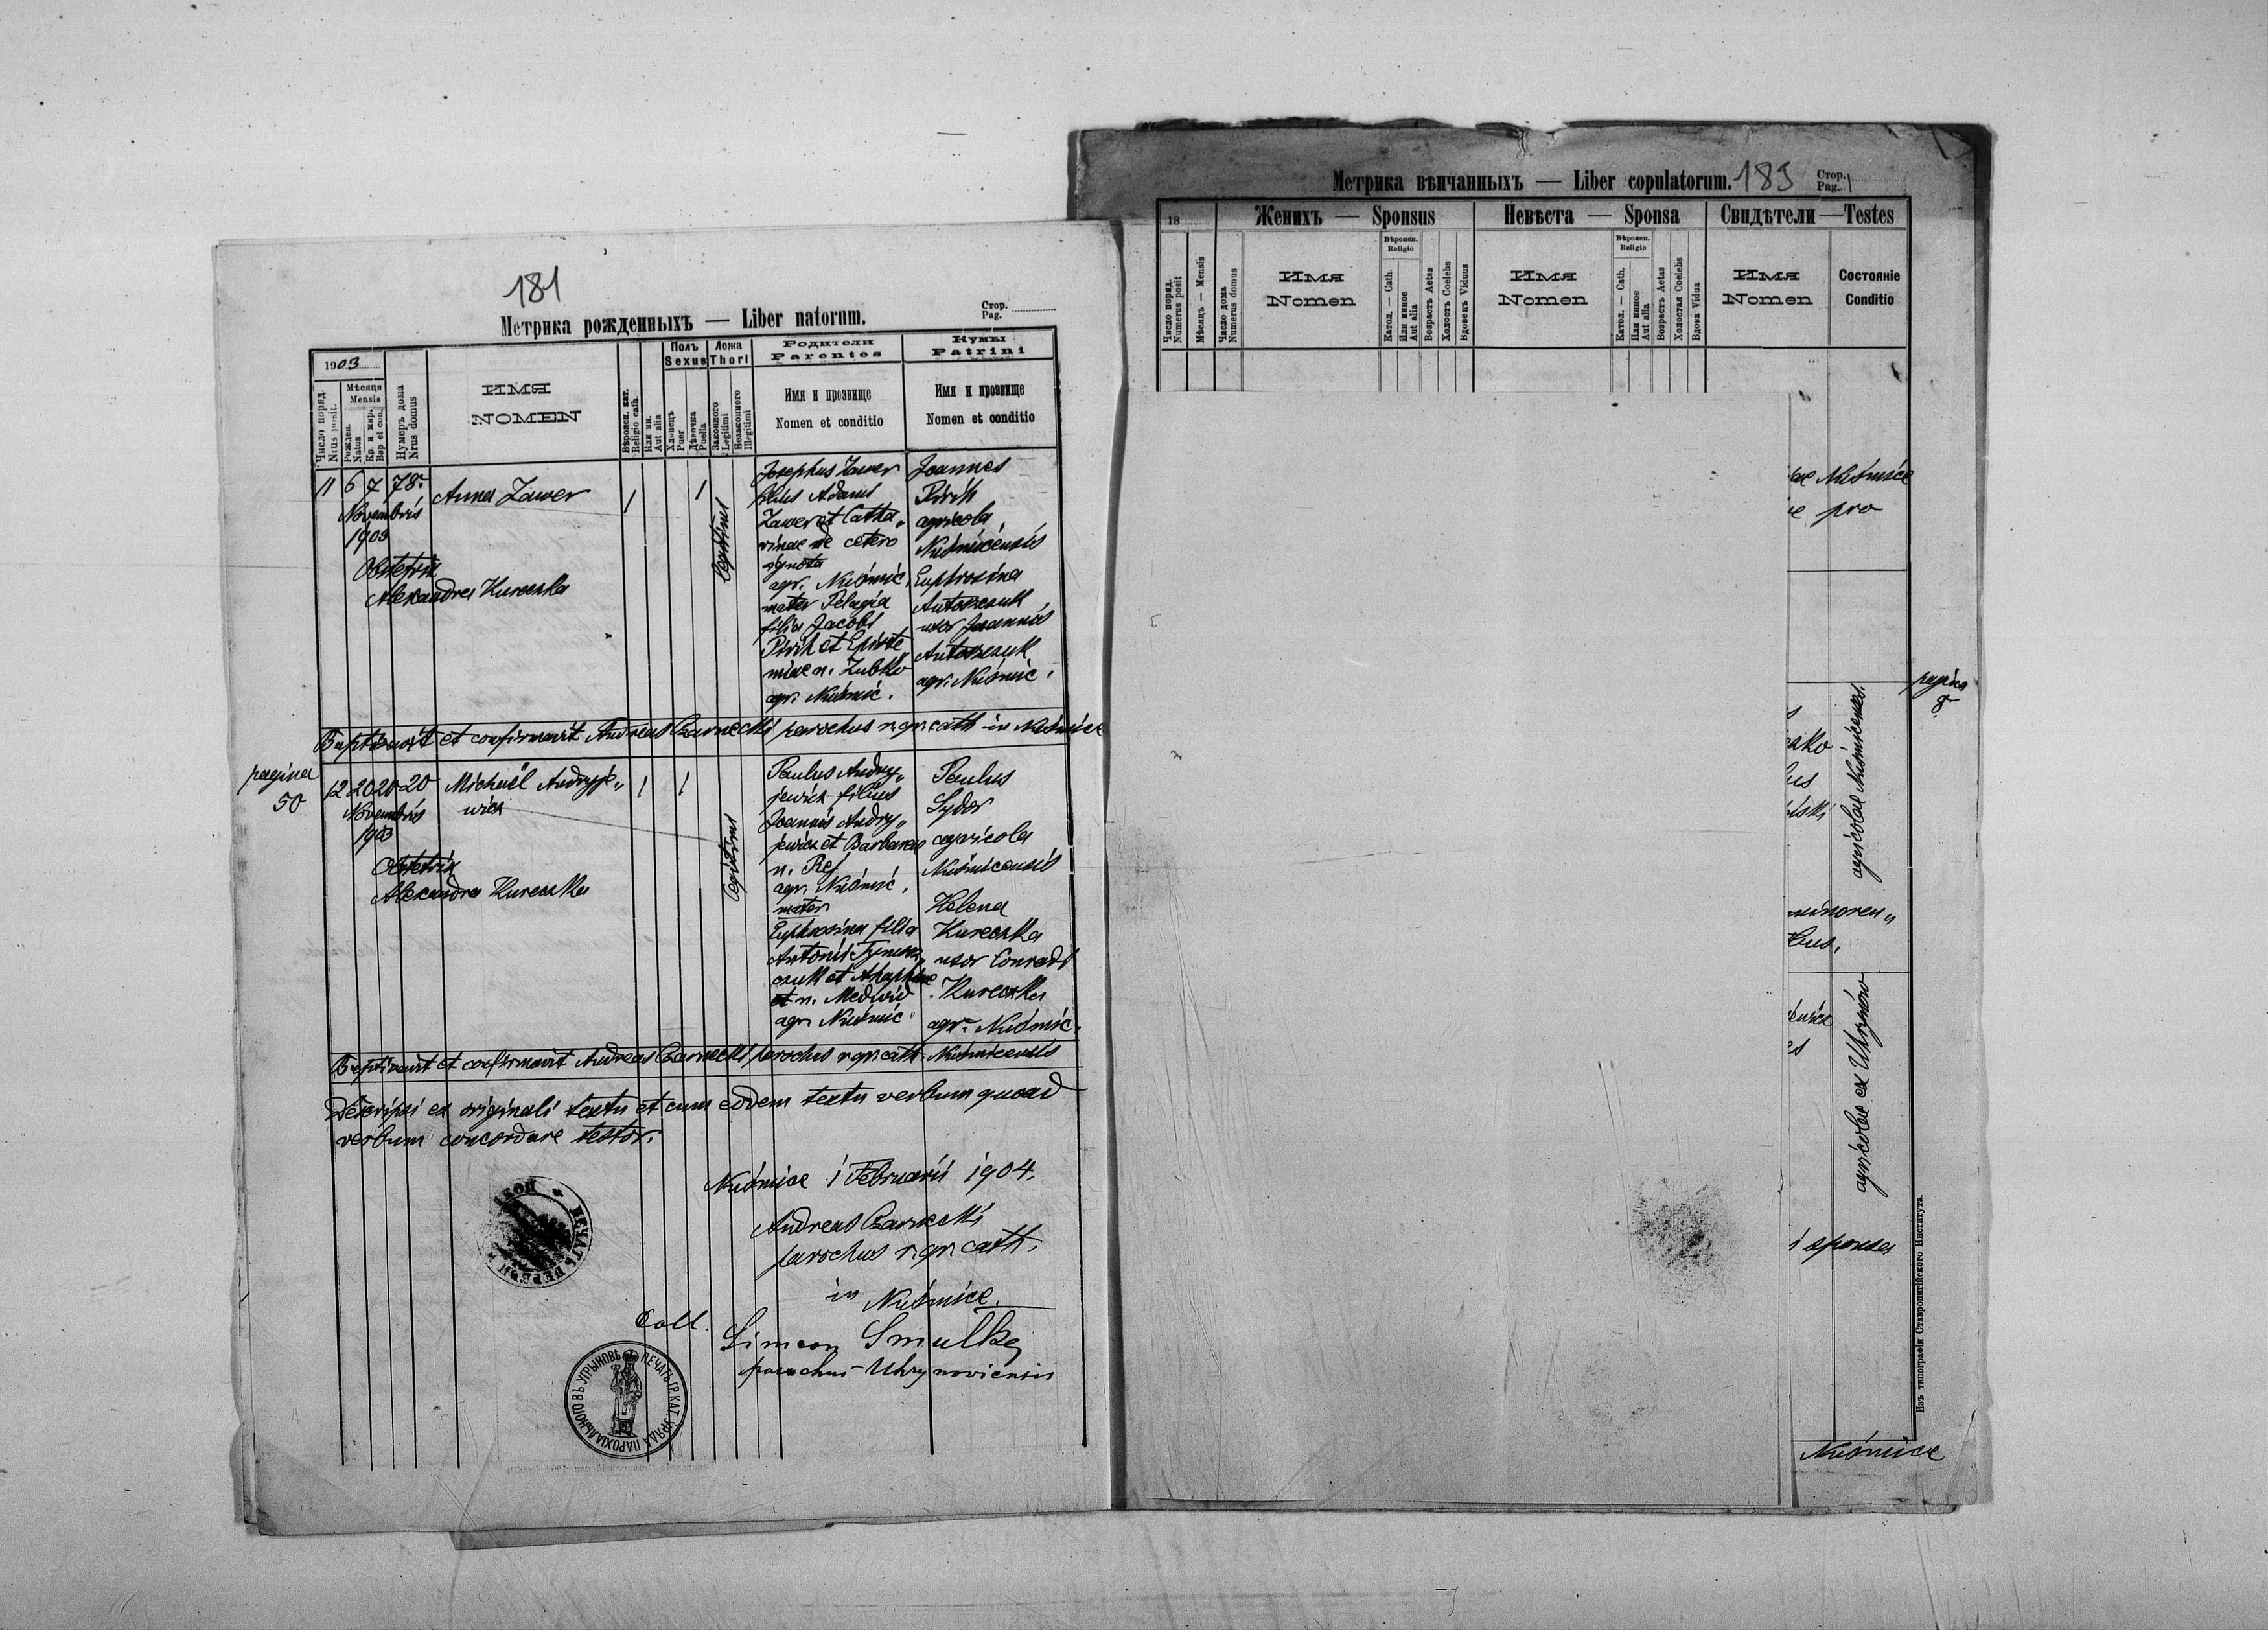 181
Метрика рожденныхъ — Liber natorum.
Стор.
Pag.
1903
Число поряд.
Nrus posit.
Мѣсяця
Mensis
Рожден.
Natus
Кр. и мѵр.
Bap et con.
Нумеръ дома
Nrus domus
ИМЯ
NOMEN
Вѣроисп. кат.
Religio cath.
Или ин.
Aut alia
Полъ
Sexus
Хлопецъ
Puer
Дѣвочка
Puella
Ложа
Thori
Законного
Legitimi
Незаконного
Illegitimi
Родители
Parentes
Имя и прозвище
Nomen et conditio
Кумы
Patrini
Имя и прозвище
Nomen et conditio
11 6 7 78.
Novembris
1903
Anna Zawer
1
1
legitimi
Obstetrix
Alexandra Kureczka
Josephus Zawer
filius Adami
Zawer et Catha„
rinae de cetero
ignota
agr. Nuśmic.
mater Pelagia
filia Jacobi
Pirih et
miae n. Zubko
agr. Nuśmic.
Joannes
Pirih
agricola
Nuśmicensis
Euphrosina
uxor Joannis
agr. Nuśmic.
Baptisavit et confirmavit Andreas Czarnecki parochus r. gr. cath in Nuśmice
pagina
50
12 20 20 20
Novembris
1903
Michaël Andryje„
wicz
1
1
legitimi
Obstetrix
Alexandra Kureczka
Paulus Andry„
jewicz filius
Joannis Andry„
jewicz et Barbarae
n. Rej
agr. Nuśmic.
mater
Euphrosina filia
Antonii
czuk et
n. Medwid
agr. Nuśmic.
Paulus
Sydor
agricola
Nuśmicensis
Helena
Kureczka
uxor Conradi
Kureczka
agr. Nuśmic.
Baptisavit et confirmavit Andreas Czarnecki parochus r. gr. cath. Nuśmicensis
Descripsi ex originali textu et cum eodem textu verbum quoad
verbum concordare testor.
Nuśmice 1 Februarii 1904.
Andreas Czarnecki
parochus r. gr. cath.
in Nuśmice.
Coll.
Simeon Smulka
parochus Uhrynoviensis
ПЕЧАТЬ ГР. КАТ. УРЯДА ПАРОХІАЛЬНОГО ВЪ УГРЫНОВѢ
Метрика вѣнчанныхъ — Liber copulatorum. 183
Стор.
Pag.
18
Число поряд.
Numerus posit
Мѣсяцъ — Mensis
Число дома
Numerus domus
Женихъ — Sponsus
Имя
Nomen
Вѣроисп.
Religio
Катол. — Cath.
Или инное
Aut alia
Возрастъ Aetas
Холостъ Coelebs
Вдовецъ Viduus
Невѣста — Sponsa
Имя
Nomen
Вѣроисп.
Religio
Катол. — Cath.
Или инное
Aut alia
Возрастъ Aetas
Холостая Coelebs
Вдова Vidua
Свидѣтели — Testes
Имя
Nomen
Состояніе
Conditio
Nuśmice
pro
pagina
8
agricolae Nuśmicenses
minoren„
agricolae ex Uhrynów
sponsa
Nuśmice
Изъ типографіи Ставропигійского Института.